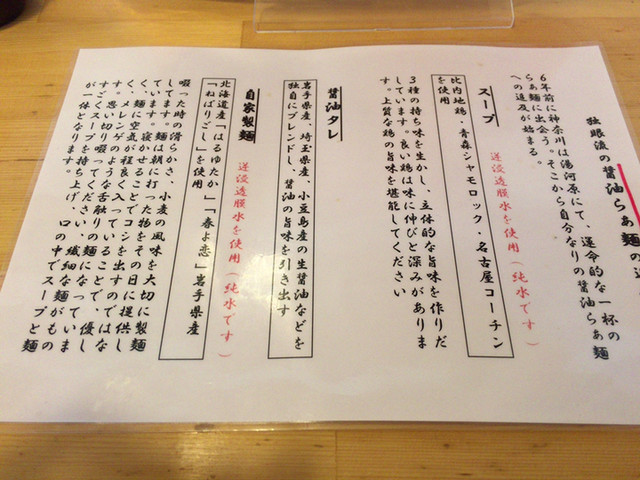 独眼流の醤油らぁ麺の
6年前に神奈川は湯河原にて、運命的な一杯の
らぁ麺に出会う。そこから自分なりの醤油らぁ麺
への追及が始まる。
スープ
逆浸透膜水を使用(純水です)
比内地鶏・青森シャモロック・名古屋コーチン
を使用
3種の持ち味を生かし、立体的な旨味を作りだ
しています。良い鶏は味に伸びと深みがありま
す。上質な鶏の旨味を堪能してください
醤油タレ
岩手県産、埼玉県産、小豆島産の生醤油などを
独自にブレンドし、醤油の旨味を引き出す
自家製麺
逆浸透膜水を使用(純水です)
北海道産「はるゆたか」「春よ恋」岩手県産
「ねばりごし」を使用
啜った時の滑らかさ、小麦の風味を大切に製麺
してます。麺は朝に打った物をその日に提供し
ています。寝かせることでコシを出すのではな
く、麺に空気が程良く入っていることで、優し
く、メレンゲのような舌触りの麺になっていま
す。思い切り啜ってください、繊細な麺がもの
すごくスープを持ち上げ、口の中でスープと麺
が一体となります。